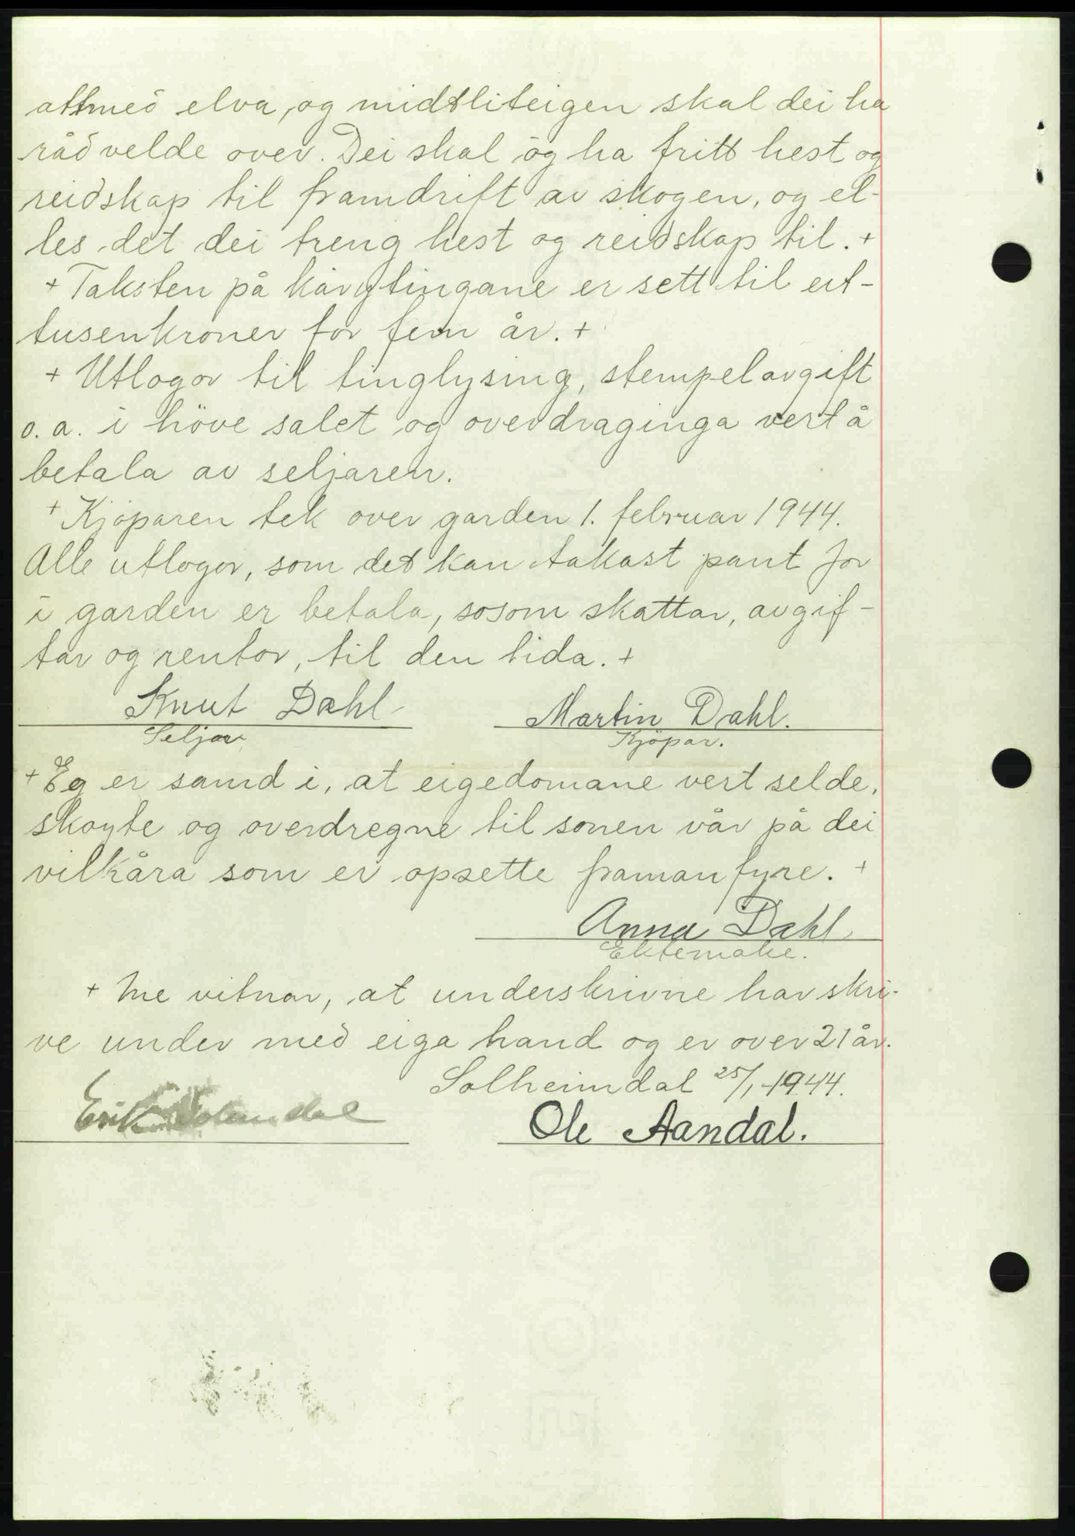 attmed elva, og midtliteigen skal dei ha
rådvelde over. Dei skal óg ha fritt hest og
reidskap til framdrift av skogen, og el-
les det dei treng hest og reidskap til. +
+ Taksten på kårytingane er sett til eit-
tusenkroner for fem år. +
+ Utlogor til tinglysing, stempelavgift
o. a. i höve salet og overdraginga vert å
betala av seljaren.
+ Kjöparen tek over garden 1. februar 1944.
Alle utlogor, som det kan takast pant for
i garden er betala, sosom skattar, avgif-
tar og rentor, til den tida. +
Knut Dahl Martin Dahl.
Seljar Kjöpar.
+ Eg er samd i, at eigedomane vert selde,
skøyte og overdregne til sonen vår på dei
vilkåra som er opsette framanfyre. +
Anna Dahl
Ektemake.
+ Me vitnar, at underskrivne har skri-
ve under med eiga hand og er over 21 år.
Solheimdal 25/1-1944.
Erik Ole Aandal.